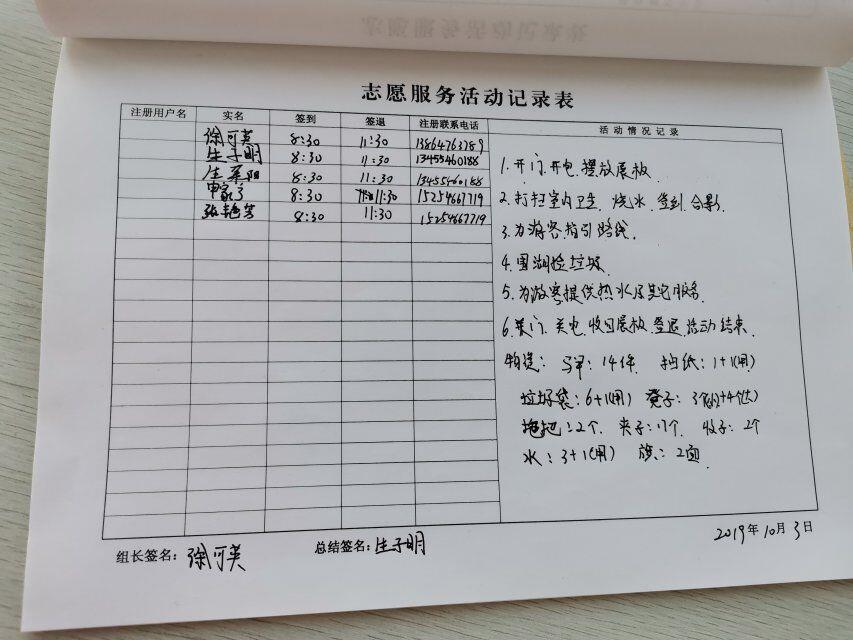 志愿服务活动记录表
注册用户名 实名 签到 签退 注册联系电话 活动情况记录
徐可英 8:30 11:30 13864763789
生子明 8:30 11:30 13455460188
生 阳 8:30 11:30 13455460188
申家 8:30 11:30 15254667719
张 芳 8:30 11:30 15254667719
1. 开门、开电、摆放展板
2. 打扫室内卫生、烧水、签到、合影、
3. 为游客指引路线、
4. 围湖捡垃圾、
5. 为游客提供热水及其它服务、
6. 关门、关电、收回展板、签退、活动结束、
物资: 马甲: 14件 抽纸: 1+1(用)
垃圾袋: 6+1(用) 凳子: 3(小)+4个(大)
拖把: 2个、夹子: 17个、 子: 2个
水: 3+1(用) 旗: 2面、
组长签名: 徐可英 总结签名: 生子明 2019年10月3日